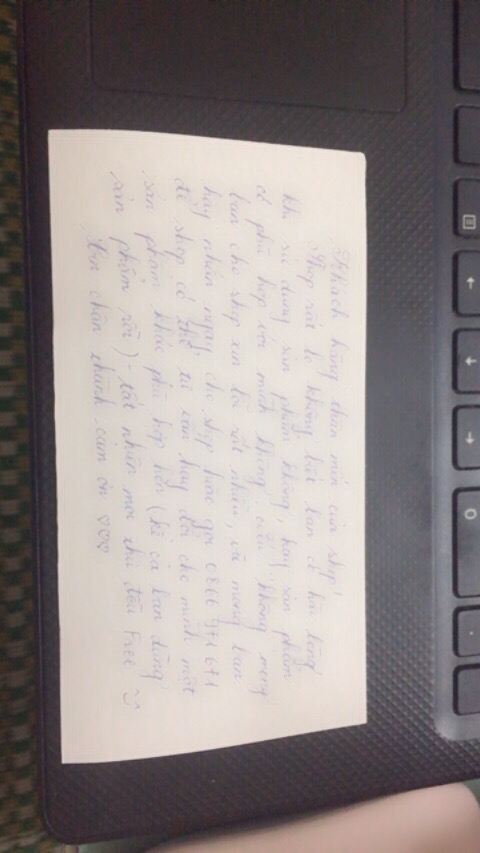 Khách hàng thân mến của shop!
Shop rất lo không biết bạn có hài lòng
khi sử dụng sản phẩm không, hay sản phẩm
có phù hợp với mình không, nếu không mong
bạn cho shop xin lỗi rất nhiều, và mong bạn
hãy nhắn ngay cho shop hoặc gọi 0866 971 671
để shop có thể tư vấn hay đổi cho mình một
sản phẩm khác phù hợp hơn (kể cả bạn dùng
sản phẩm rồi) - tất nhiên mọi thứ đều Free
Xin chân thành cảm ơn ♡♡♡